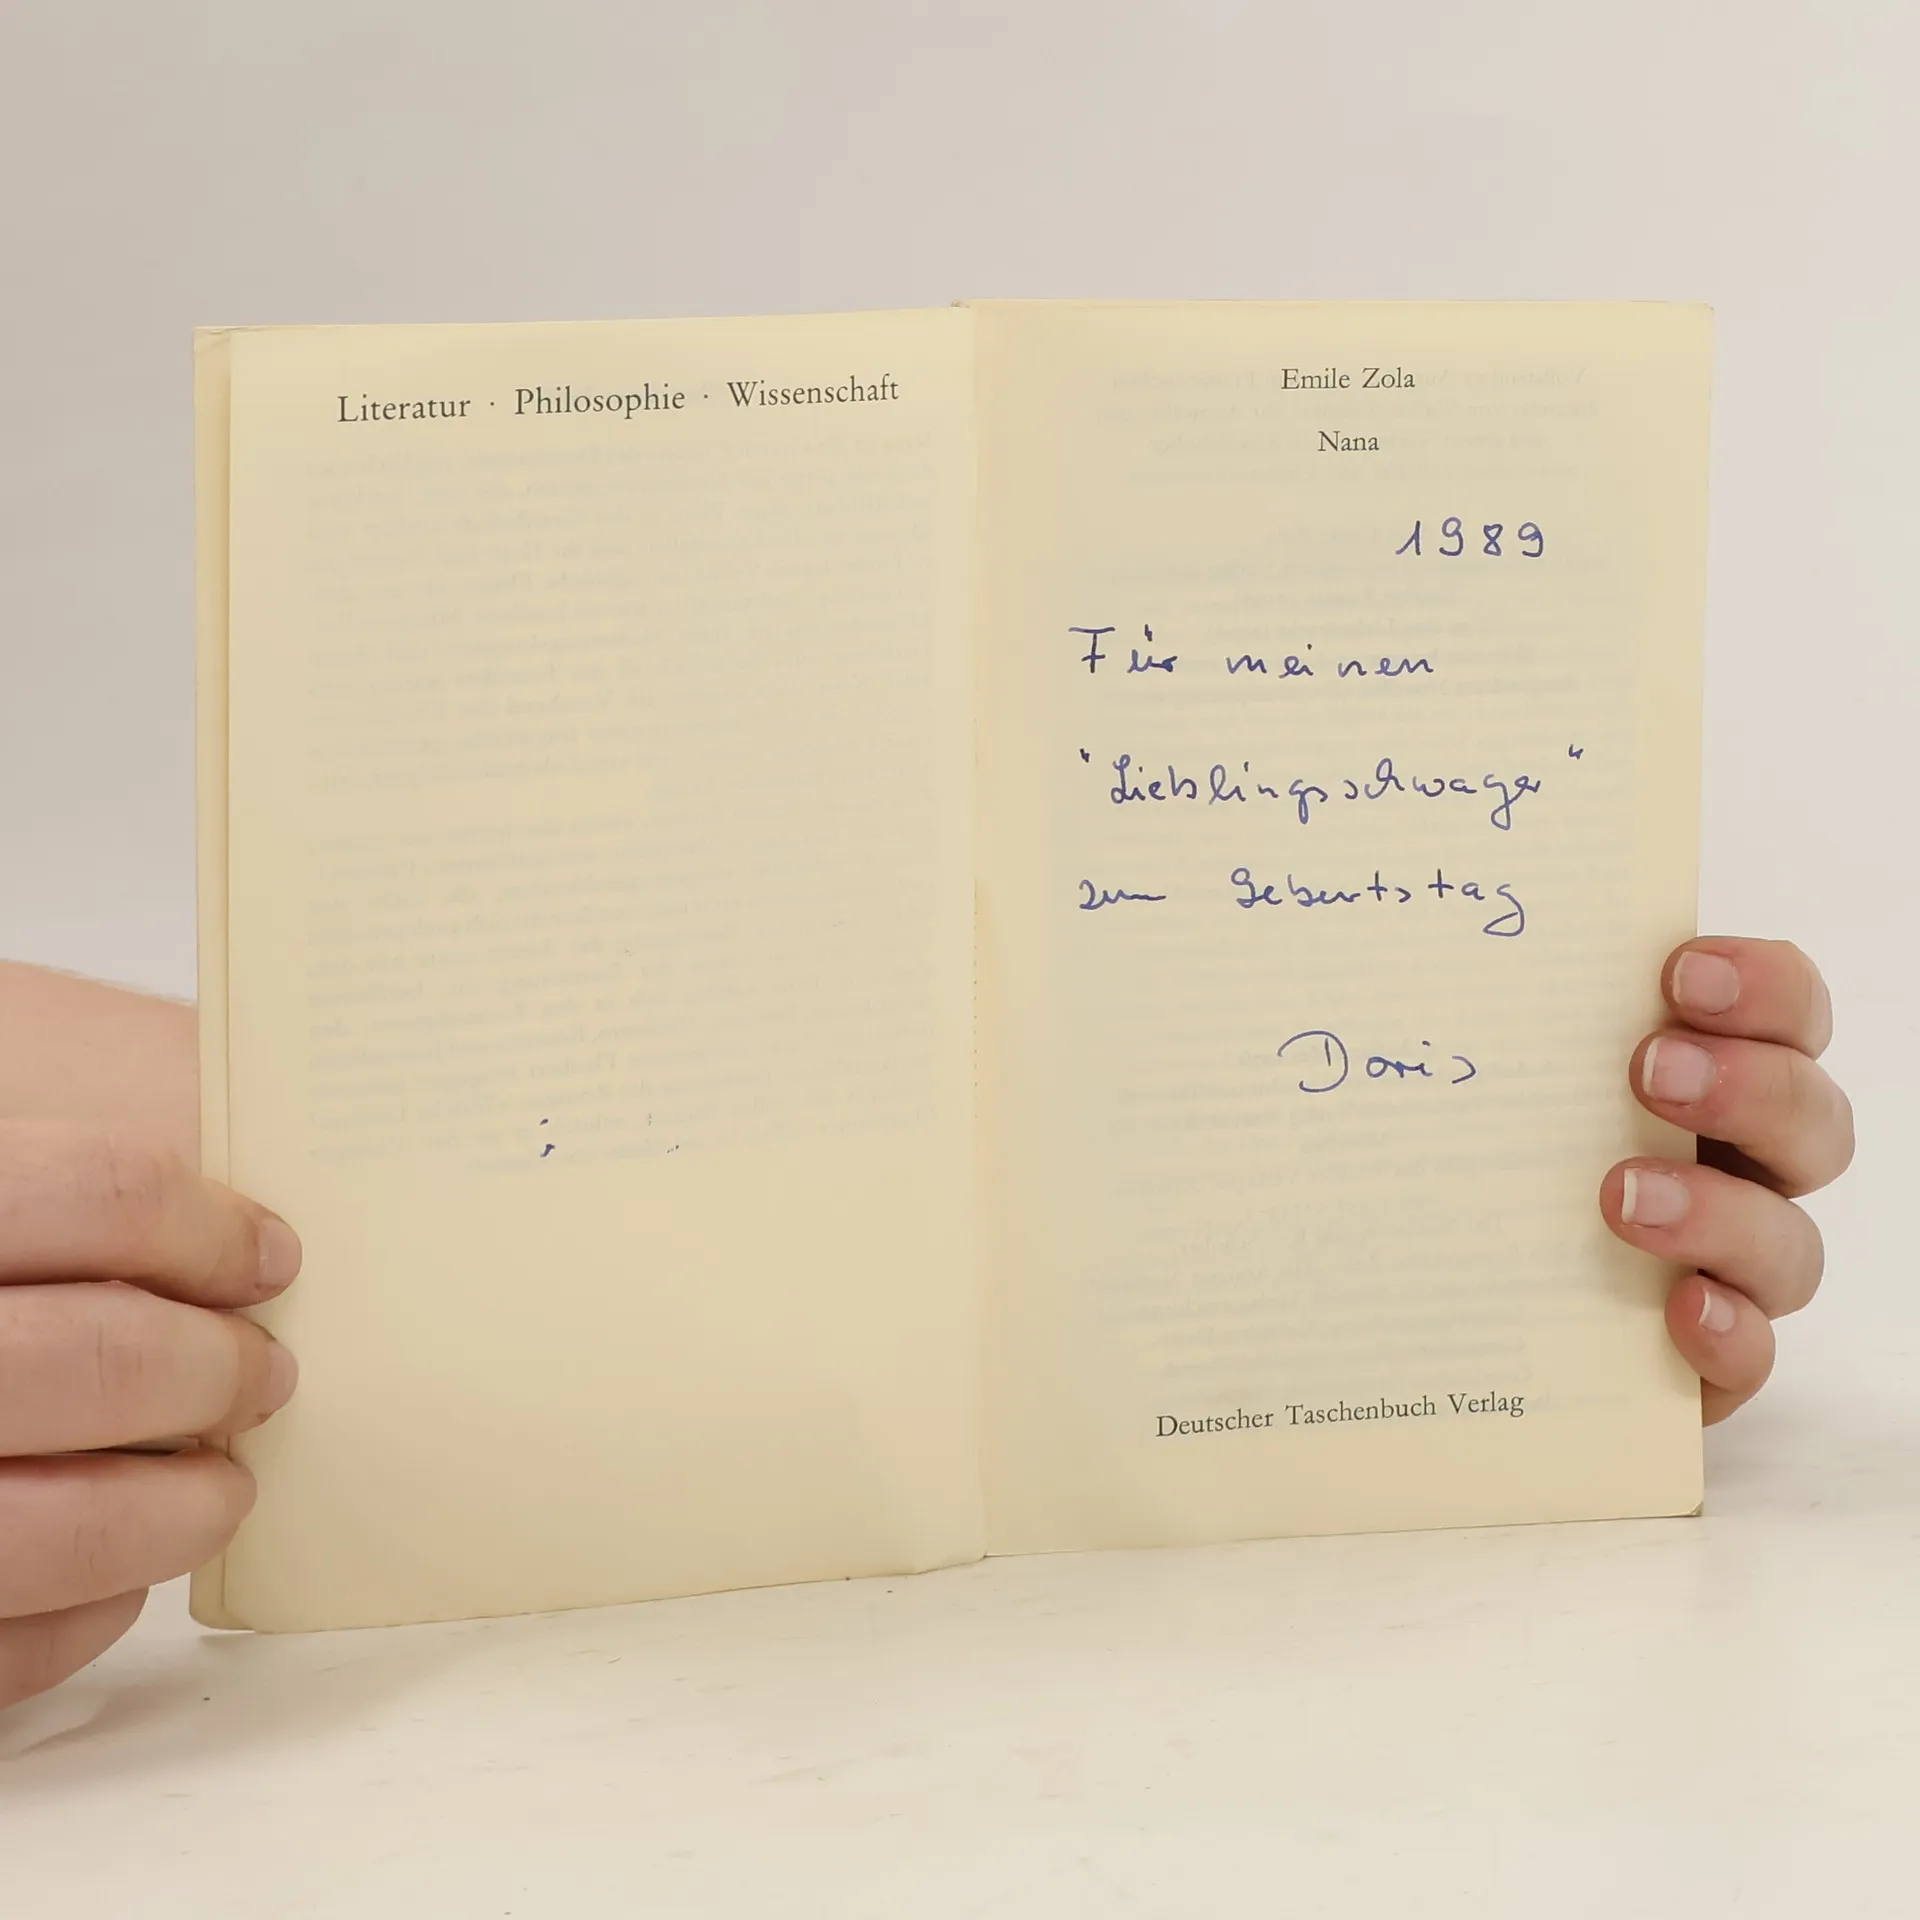 Literatur · Philosophie · Wissenschaft
Emile Zola
Nana
1989
Für meinen
"Lieblingsschwager"
zum Geburtstag
Doris
Deutscher Taschenbuch Verlag